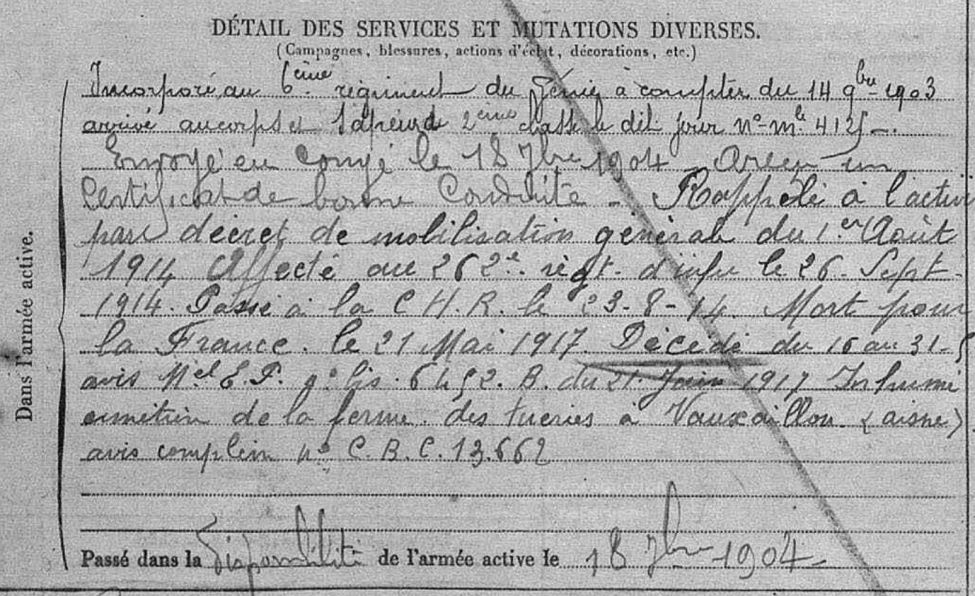 DÉTAIL DES SERVICES ET MUTATIONS DIVERSES.
(Campagnes, blessures, actions d'éclat, décorations, etc.)
Incorporé au 6ème régiment du Génie à compter du 14 9bre 1903
arrivé au corps et Sapeur de 2ème classe le dit jour n° mle 4125 -.
Envoyé en Congé le 18 7bre 1904 - Avec un
Certificat de bonne Conduite - Rappelé à l'activi
par décret de mobilisation générale du 1er Août
1914 Affecté au 262e régt. d'infie le 26 - Sept -
1914. Passé à la C H. R. le 23-8-14. Mort pour
la France. le 21 Mai 1917 Décédé du 16 au 31-5
avis Mel E. P. 6452. B. du 21. Juin 1917 Inhumé
cimetière de la ferme des tueries à Vauxaillon (aisne)
avis complem n° C. B. C. 13.662
Dans l'armée active.
Passé dans la Disponibilité de l'armée active le 18 7bre 1904 -